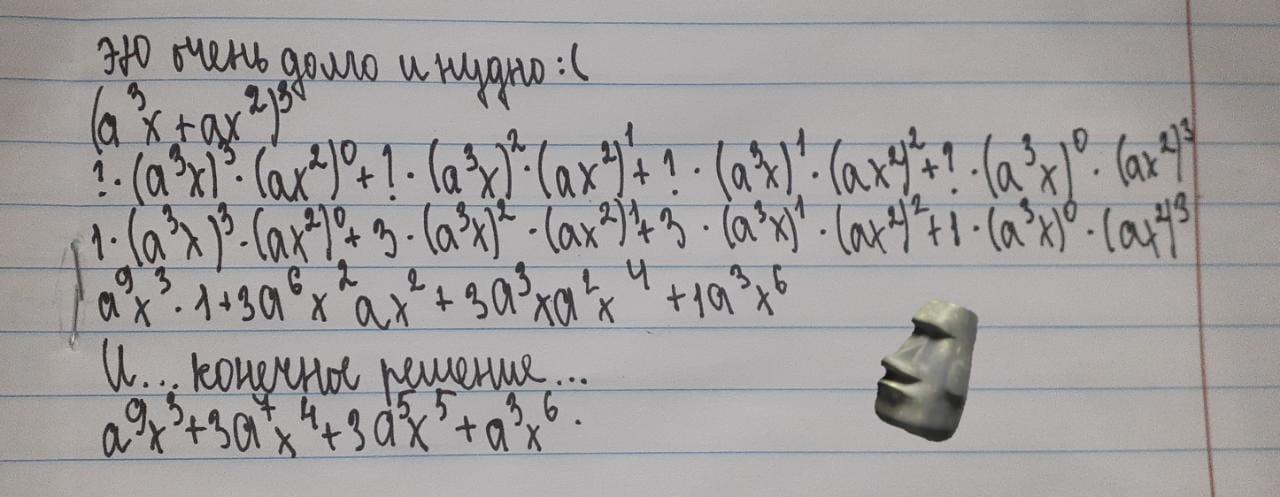 Это очень долго и нудно :(
(a³x + ax²)³
? · (a³x)³ · (ax²)⁰ + ? · (a³x)² · (ax²)¹ + ? · (a³x)¹ · (ax²)² + ? · (a³x)⁰ · (ax²)³
1 · (a³x)³ · (ax²)⁰ + 3 · (a³x)² · (ax²)¹ + 3 · (a³x)¹ · (ax²)² + 1 · (a³x)⁰ · (ax²)³
a⁹x³ · 1 + 3a⁶x²ax² + 3a³xa²x⁴ + 1a³x⁶
И... конечное решение...
a⁹x³ + 3a⁷x⁴ + 3a⁵x⁵ + a³x⁶.